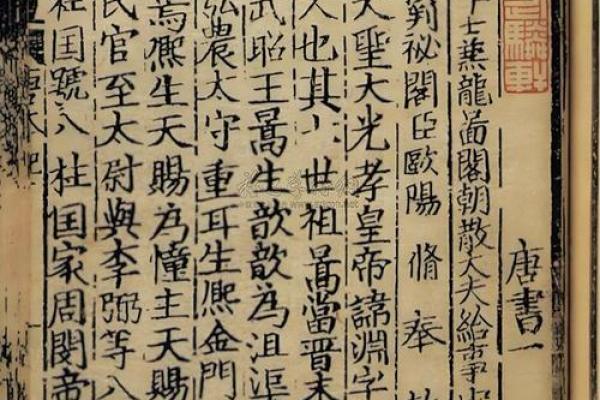 唐書一
士兼龍啚閣朝散大夫給事
判祕閣臣歐陽脩奉
大聖大光孝皇帝諱淵字
人也其世祖暠當晉末
武昭王暠生歆歆為沮渠
弘農太守重耳生熈金門
焉熈生天賜為憧主天賜
民官至太尉與李弼等八
柱囯號八柱囯家周閔帝